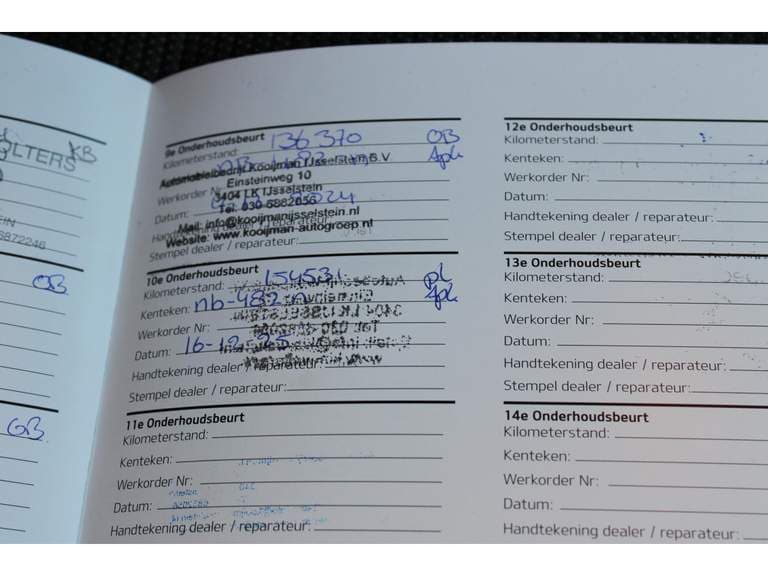 OLTERS KB
6872246
OB
GB
9e Onderhoudsbeurt
Kilometerstand: 136370 OB
Automobielbedrijf Kooijman IJsselstein B.V.
Einsteinweg 10
Werkorder Nr:
3404 LK IJsselstein
Datum:
Tel. 030-6882056
Mail: info@kooijmanijsselstein.nl
Website: www.kooijman-autogroep.nl
Stempel dealer / reparateur:
10e Onderhoudsbeurt
Kilometerstand: 154531 pl
Kenteken: nb-482-n Apk
Werkorder Nr:
Datum: 16-12-25
Handtekening dealer / reparateur:
Stempel dealer / reparateur:
11e Onderhoudsbeurt
Kilometerstand:
Kenteken:
Werkorder Nr:
Datum:
Handtekening dealer / reparateur:
12e Onderhoudsbeurt
Kilometerstand:
Kenteken:
Werkorder Nr:
Datum:
Handtekening dealer / reparateur:
Stempel dealer / reparateur:
13e Onderhoudsbeurt
Kilometerstand:
Kenteken:
Werkorder Nr:
Datum:
Handtekening dealer / reparateur:
Stempel dealer / reparateur:
14e Onderhoudsbeurt
Kilometerstand:
Kenteken:
Werkorder Nr:
Datum:
Handtekening dealer / reparateur: